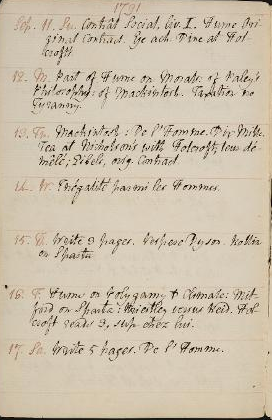 1791
Sep. 11. Su. Contrat Social, Liv. I. Hume Ori-
ginal Contract. Dine at Hol-
croft's
12. M. Part of Hume on Morals: of Paley's
Philosophy: of Mackintosh. Taxation no
Tyranny.
13. Tu. Mackintosh: De l'Homme.
Tea at Nicholson's with Holcroft,
Bibel, orig. Contract.
14. W. Inégalité parmi les Hommes.
15. Write 2 pages. Dyson. Rollin
on Sparta.
16. F. Hume on Polygamy & Climate: Mit-
ford on Sparta: Priestley versus Reid. Hol-
croft reads 3, sup chez lui.
17. Sa. Write 5 pages. De l'Homme.